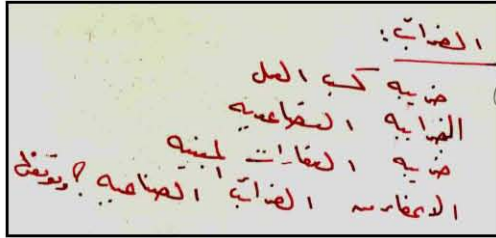 الضرائب:
ضريبة كسب العمل
الضريبة التصاعدية
ضريبة العقارات المبنية
الاعفاء من الضرائب الصناعية